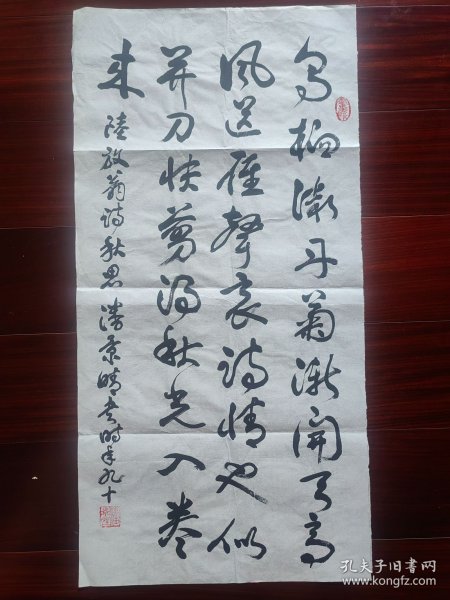 乌桕微丹菊渐开天高
风送雁声哀诗情也似
并刀快剪得秋光入卷
来
陆放翁诗秋思潘景晴书时年九十
孔夫子旧书网
www.kongfz.com